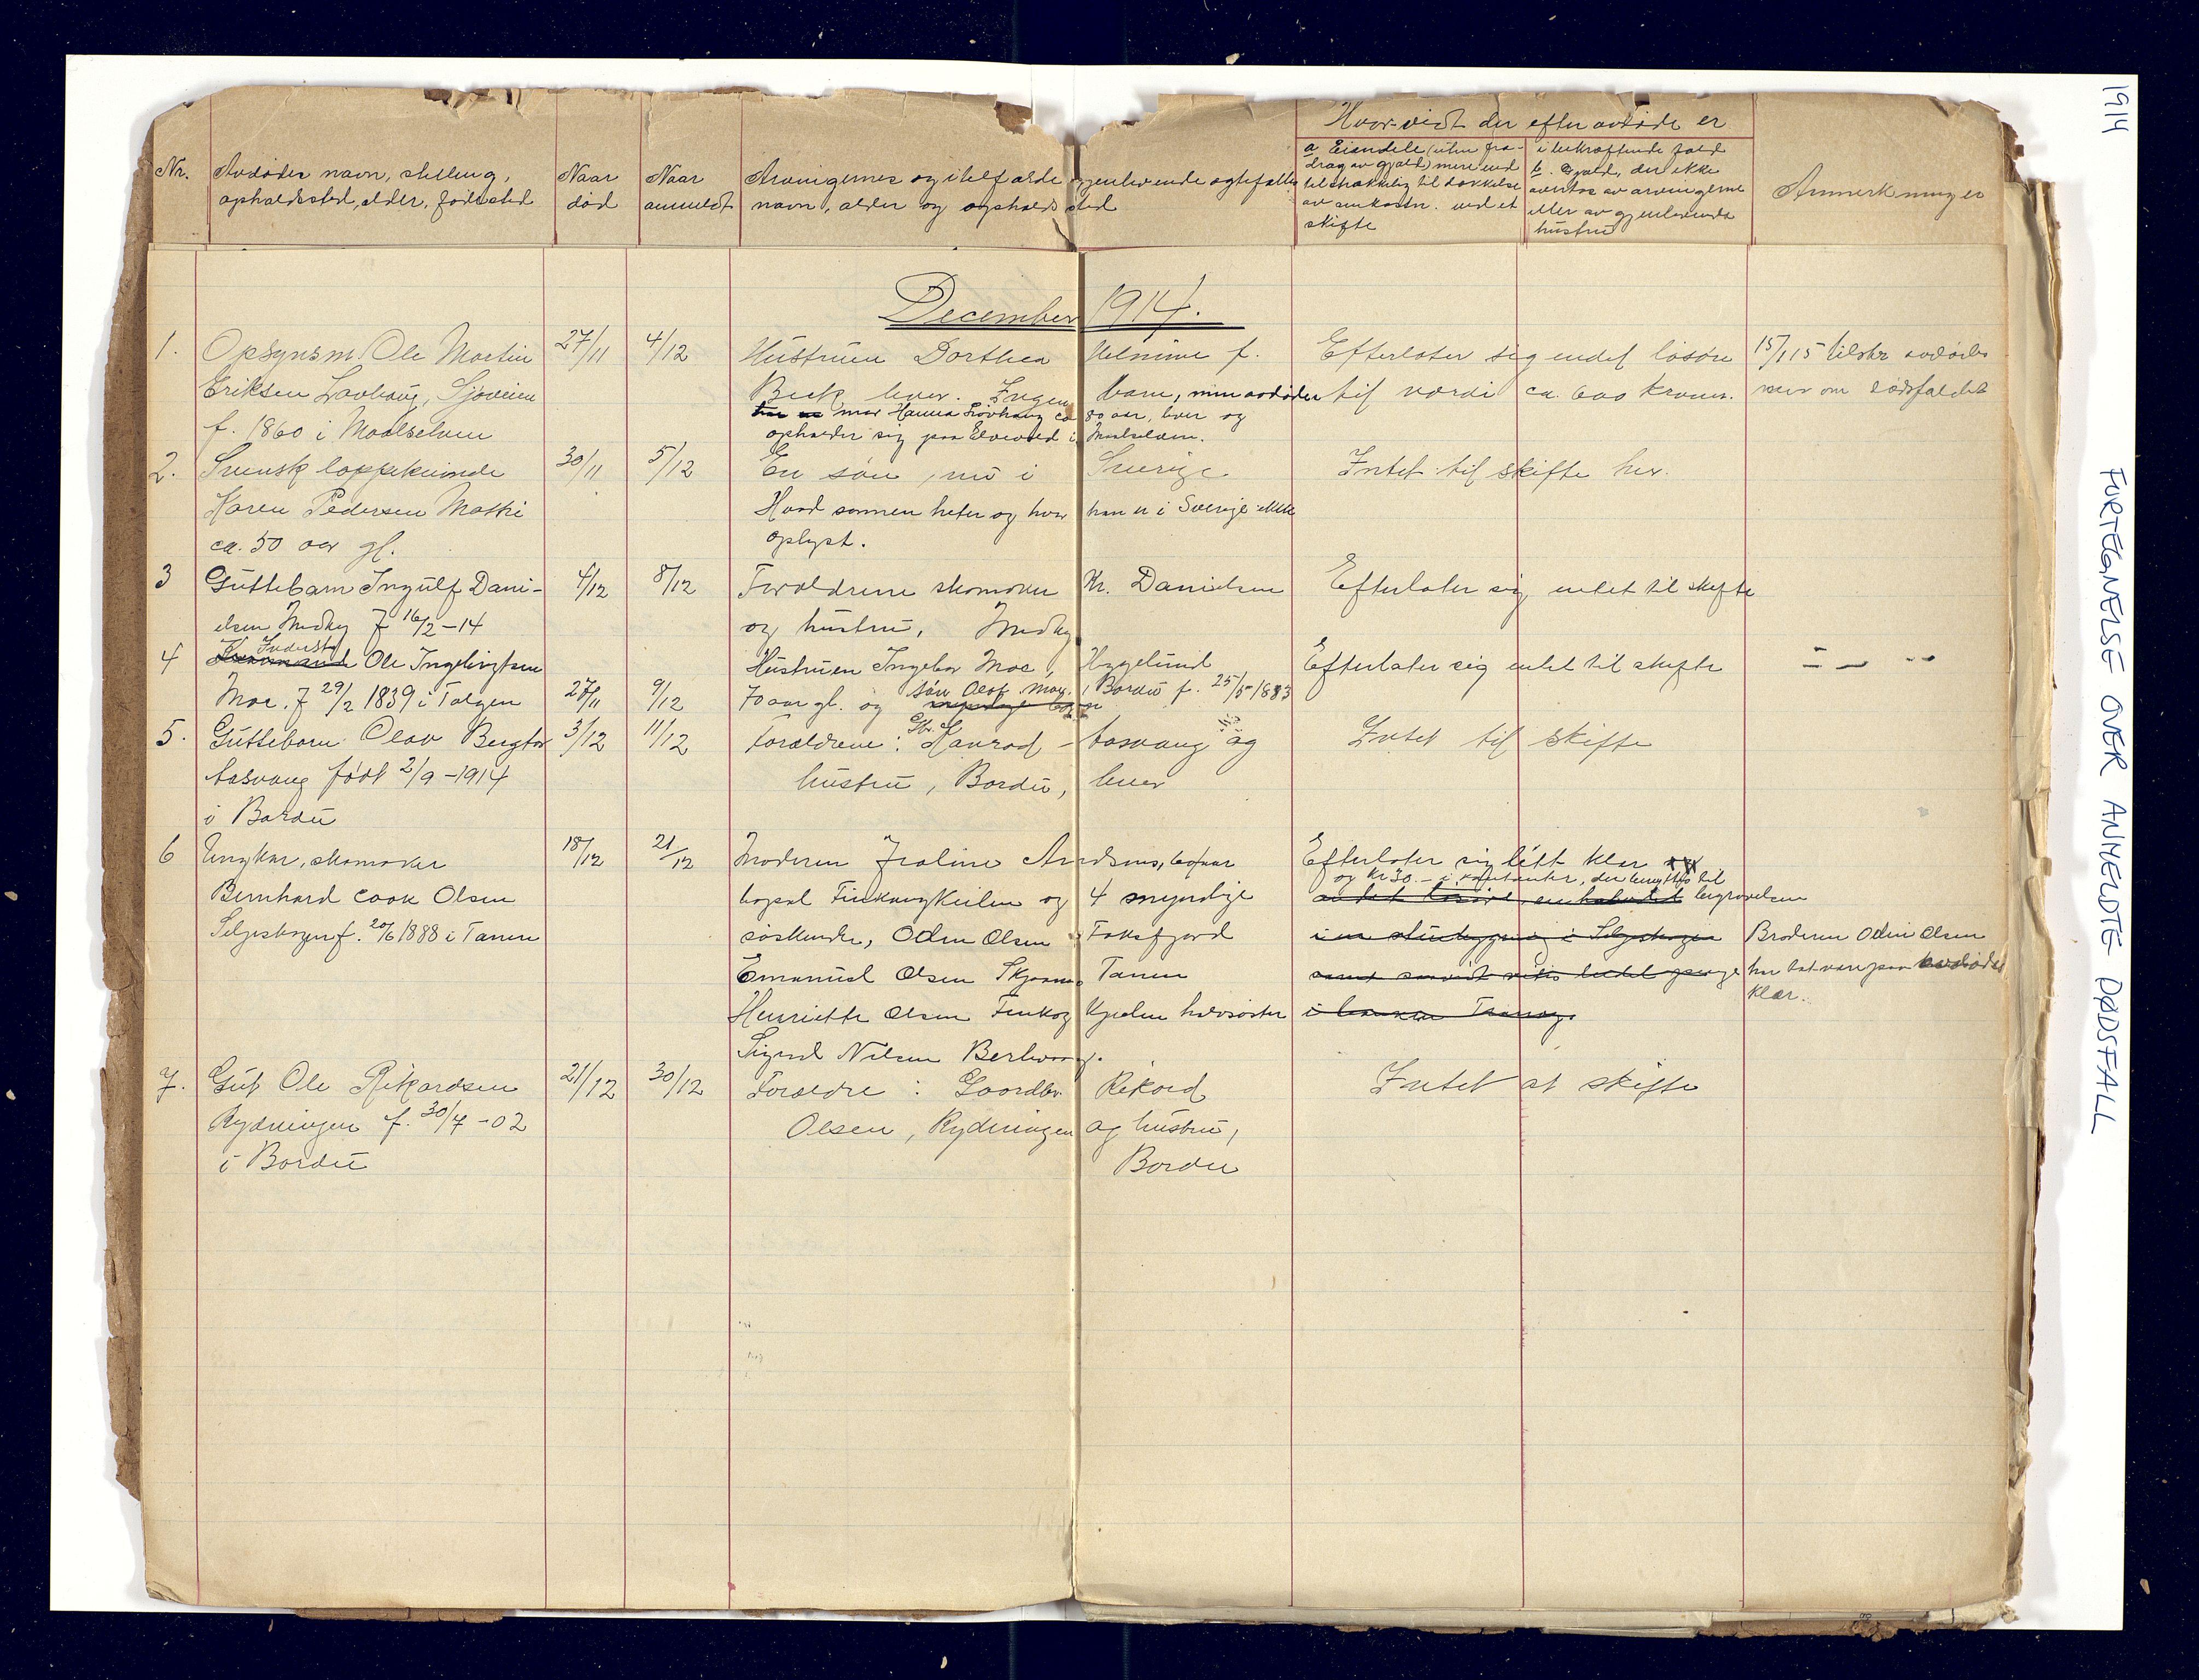 1914
FORTEGNELSE OVER ANMELDTE DØDSFALL
Nr.
Avdødes navn, stilling,
opholdssted, alder, fødested
Naar
død
Naar
anmeldt
Arvingernes og i telfælde gjenlevende ægtefælles
navn, alder og opholdssted
Hvorvidt der efter avdøde er
a Eiendele (uten fra-
drag av gjæld) mere end
tilstrækkelig til dækkelse
av omkostn. ved et
skifte
i bekræftende fald
b. Gjæld, der ikke
overtas av arvingerne
eller av gjenlevende
hustru
Anmerkninger
December 1914.
1.
Opsynsm. Ole Martin
Eriksen Løvhaug, Sjøveien
f. 1860 i Maalselven
27/11
4/12
Hustruen Dorthea Helmine f.
Beck, lever. Ingen barn, men avdødes
mor Hanna Løvhaug ca 80 aar, lever og
opholder sig paa Elvevold i Maalselven.
Efterlater sig endel løsøre
til værdi ca. 600 kroner.
15/1 15 tilskr avdødes
mor om dødsfaldet
2.
Svensk lappekvinde
Karen Pedersen Mathi
ca. 50 aar gl.
30/11
5/12
En søn, nu i Sverige
Hvad sønnen heter og hvor han er i Sverige ikke
oplyst.
Intet til skifte her.
3
Guttebarn Ingulf Dani-
elsen Medby f 16/2-14
4/12
8/12
Forældrene skomaker Kr. Danielsen
og hustru, Medby
Efterlater sig intet til skifte
4
Inderst
Ole Ingebrigtsen
Moe. f 29/2 1839 i Tolgen
27/11
9/12
Hustruen Ingebor Moe, Haggelund
70 aar gl. og søn Olaf Moe, i Bardu f. 25/5 1883
Efterlater sig intet til skifte
5.
Guttebarn Olav Bergtor
Aasvang født 2/9-1914
i Bardu
3/12
11/12
Forældrene: Gbr. Konrad Aasvang og
hustru, Bardu, lever
Intet til skifte
6
Ungkar, skomaker
Bernhard Cook Olsen
Seljeskogen f. 20/6 1888 i Tanen
18/12
21/12
Moderen Fraline Andsens, 60 aar
bopæl Finkongkeilen og 4 myndige
søskende, Odin Olsen Toksfjord
Emanuel Olsen Skjaanes Tanen
Henriette Olsen Finkog Kjeilen halvsøster
Sigrid Nilsen Berlevaag.
Efterlater sig litt klær
og kr 30.- i kontanter, der benyttes til
begravelsen
Broderen Odin Olsen
har tat vare paa avdødes
klær.
7.
Gut Ole Rikardsen
Rydningen f. 30/7-02
i Bardu
21/12
30/12
Forældre: Gaardbr. Rikard
Olsen, Rydningen og hustru,
Bardu
Intet at skifte